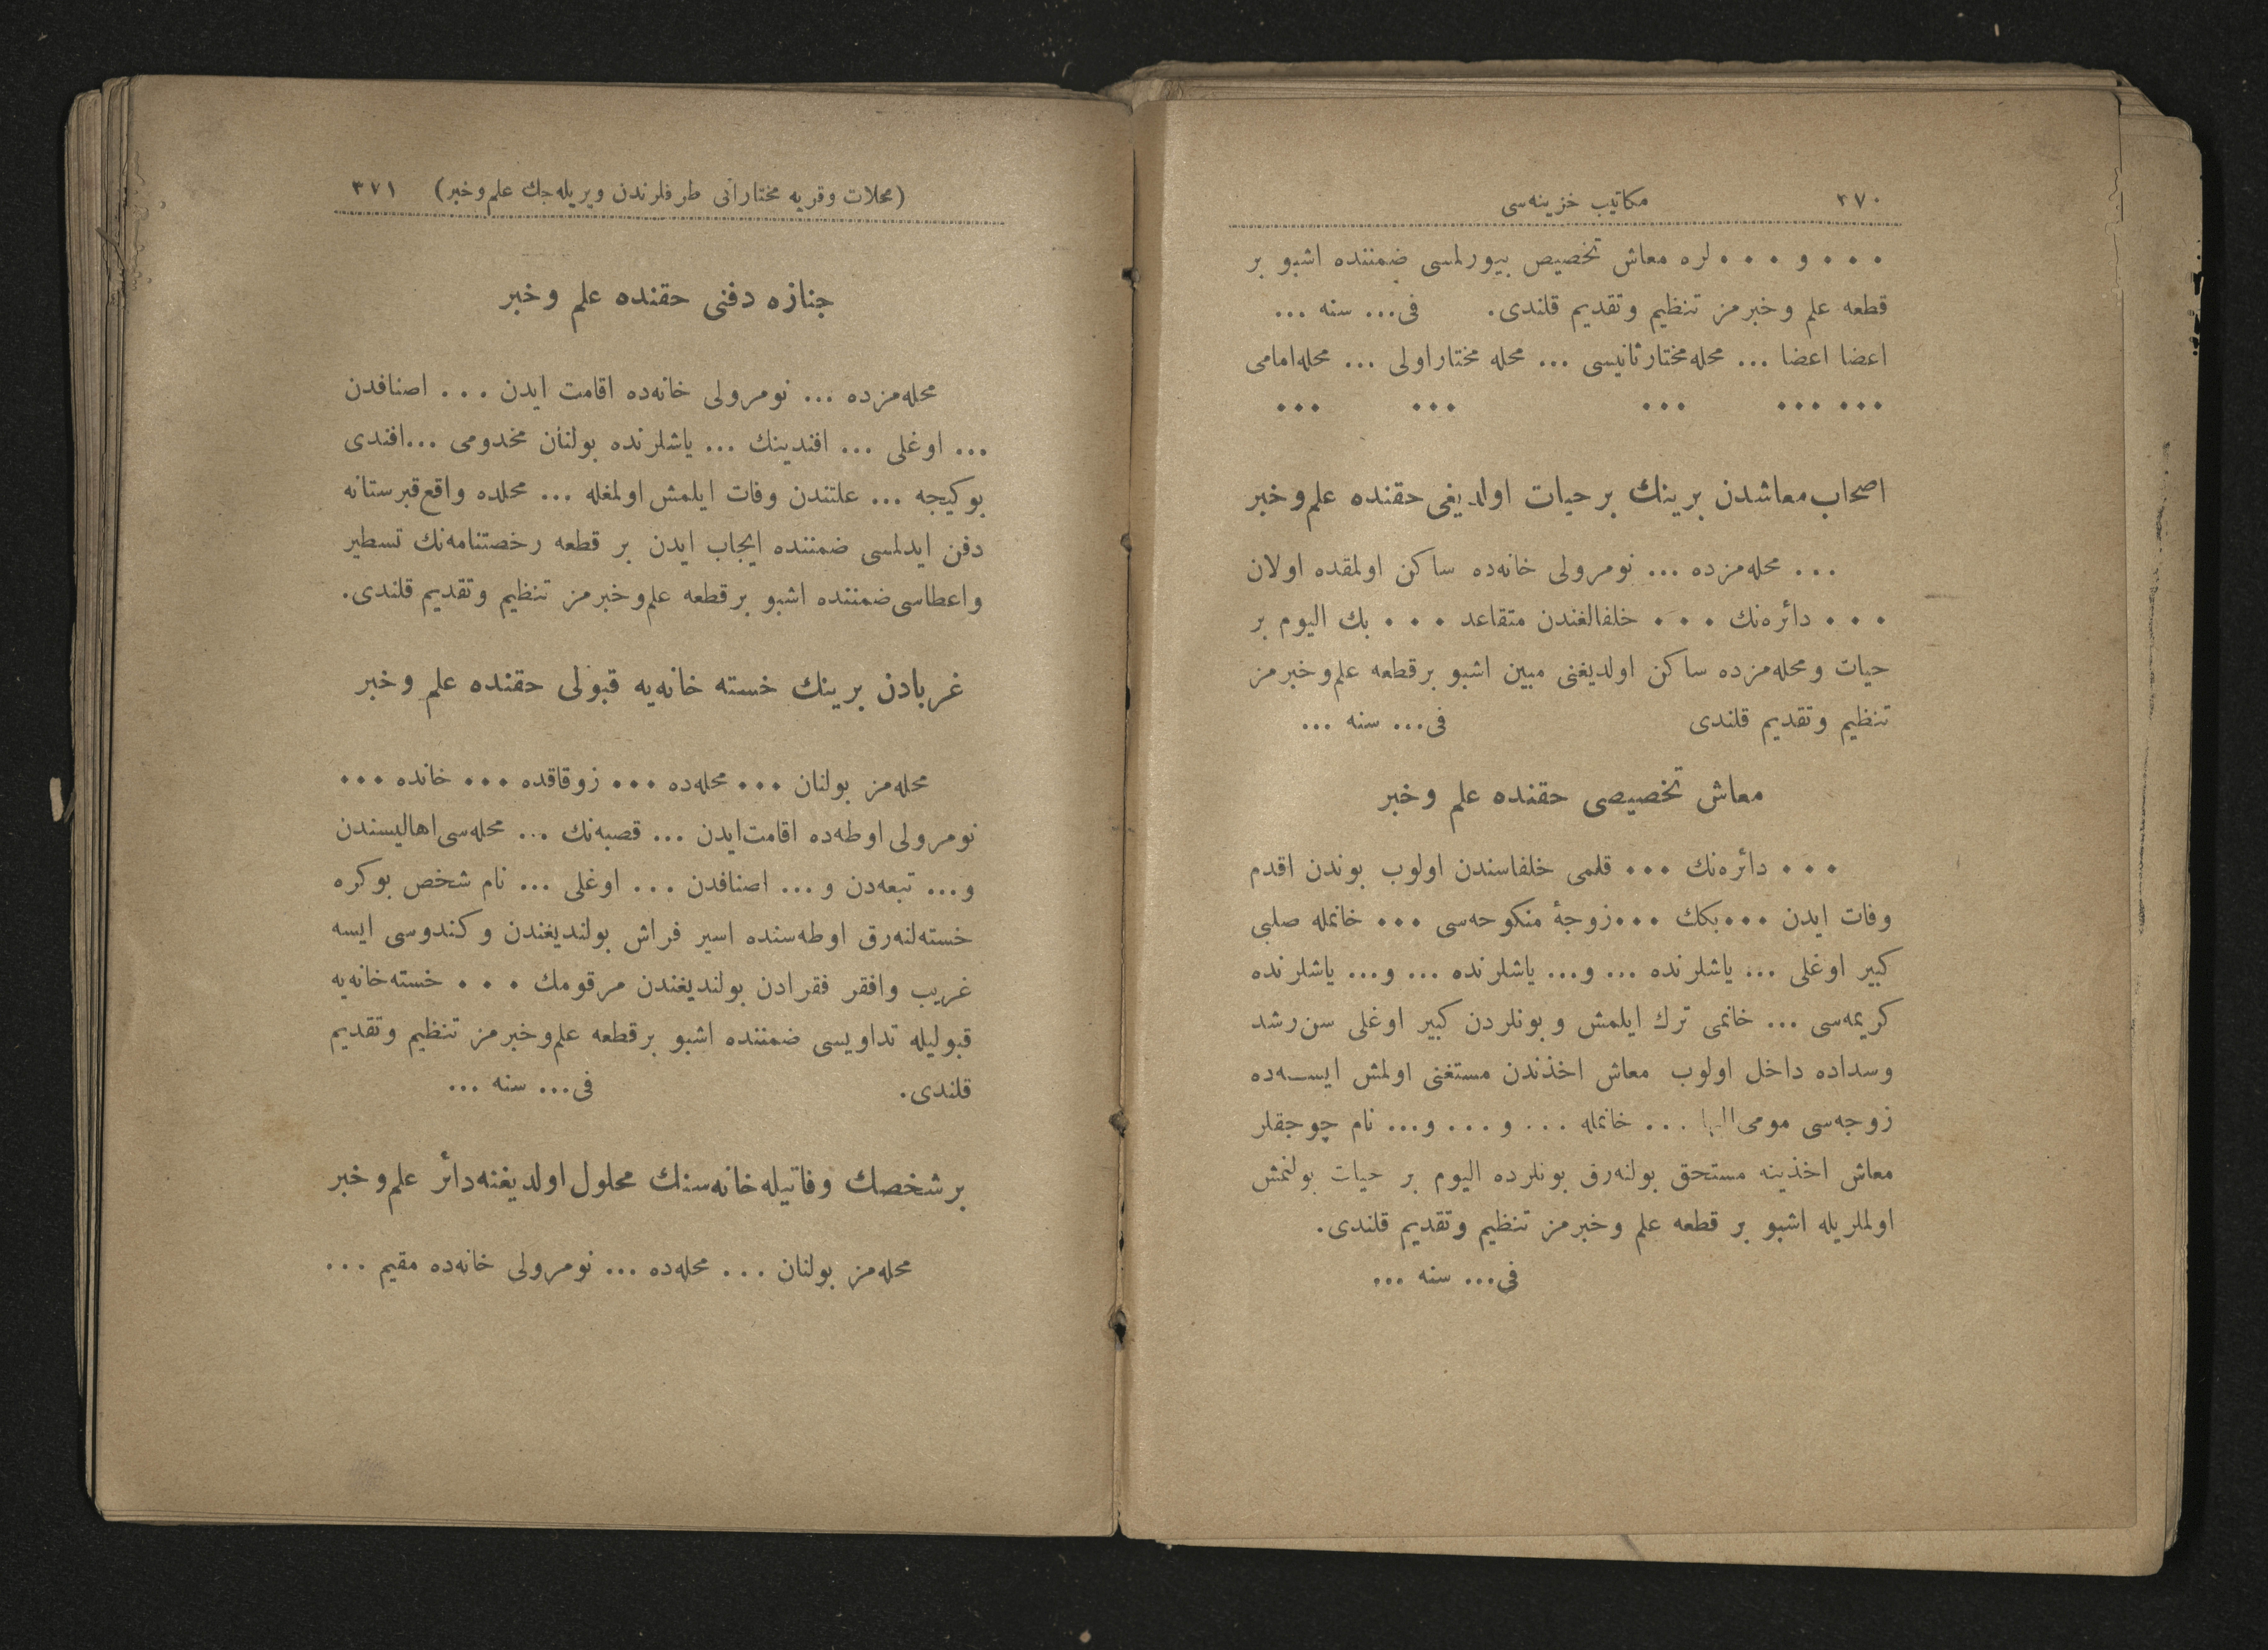 ٣٧٠ مكاتيب خزينه‌سى
• • • و • • • لره معاش تخصيص بيورلمسى ضمننده اشبو بر
قطعه علم وخبرمز تنظيم وتقديم قلندى. فى... سنه ...
اعضا اعضا ... محله مختار ثانيسى ... محله مختار اولى ... محله امامى
... ... ... ... ...
اصحاب معاشدن برينك بر حيات اولديغى حقنده علم وخبر
... محله‌مزده ... نومرولى خانه‌ده ساكن اولمقده اولان
• • • دائره‌نك • • • خلفالغندن متقاعد • • • بك اليوم بر
حيات ومحله‌مزده ساكن اولديغنى مبين اشبو برقطعه علم وخبرمز
تنظيم وتقديم قلندى فى... سنه ...
معاش تخصيصى حقنده علم وخبر
• • • دائره‌نك ... قلمى خلفاسندن اولوب بوندن اقدم
وفات ايدن ...بكك ...زوجهٔ منكوحه‌سى ... خانمله صلبى
كبير اوغلى ... ياشلرنده ... و... ياشلرنده ... و... ياشلرنده
كريمه‌سى ... خانمى ترك ايلمش وبونلردن كبير اوغلى سن رشد
وسداده داخل اولوب معاش اخذندن مستغنى اولمش ايســه‌ده
زوجه‌سى مومى اليها ... خانمله ... و ... و... نام چوجقلر
معاش اخذينه مستحق بولنه‌رق بونلرده اليوم بر حيات بولنمش
اولملريله اشبو بر قطعه علم وخبرمز تنظيم وتقديم قلندى.
فى... سنه ...
(محلات وقريه مختاراتى طرفلرندن ويريله‌جك علم وخبر) ٣٧١
جنازه دفنى حقنده علم وخبر
محله‌مزده ... نومرولى خانه‌ده اقامت ايدن ... اصنافدن
... اوغلى ... افندينك ... ياشلرنده بولنان مخدومى ...افندى
بوكيجه ... علتندن وفات ايلمش اولمغله ... محلده واقع قبرستانه
دفن ايدلمسى ضمننده ايجاب ايدن بر قطعه رخصتنامه‌نك تسطير
واعطاسى ضمننده اشبو برقطعه علم وخبرمز تنظيم وتقديم قلندى.
غربادن برينك خسته خانه‌يه قبولى حقنده علم وخبر
محله‌مز بولنان ... محله‌ده ... زوقاقده ... خانده ...
نومرولى اوطه‌ده اقامت ايدن ... قصبه‌نك ... محله‌سى اهاليسندن
و... تبعه‌دن و ... اصنافدن ... اوغلى ... نام شخص بوكره
خسته‌لنه‌رق اوطه‌سنده اسير فراش بولنديغندن وكندوسى ايسه
غريب وافقر فقرادن بولنديغندن مرقومك • • • خسته خانه‌يه
قبوليله تداويسى ضمننده اشبو برقطعه علم وخبرمز تنظيم وتقديم
قلندى. فى... سنه ...
برشخصك وفاتيله خانه‌سنك محلول اولديغنه دائر علم وخبر
محله‌مز بولنان ... محله‌ده ... نومرولى خانه‌ده مقيم ...